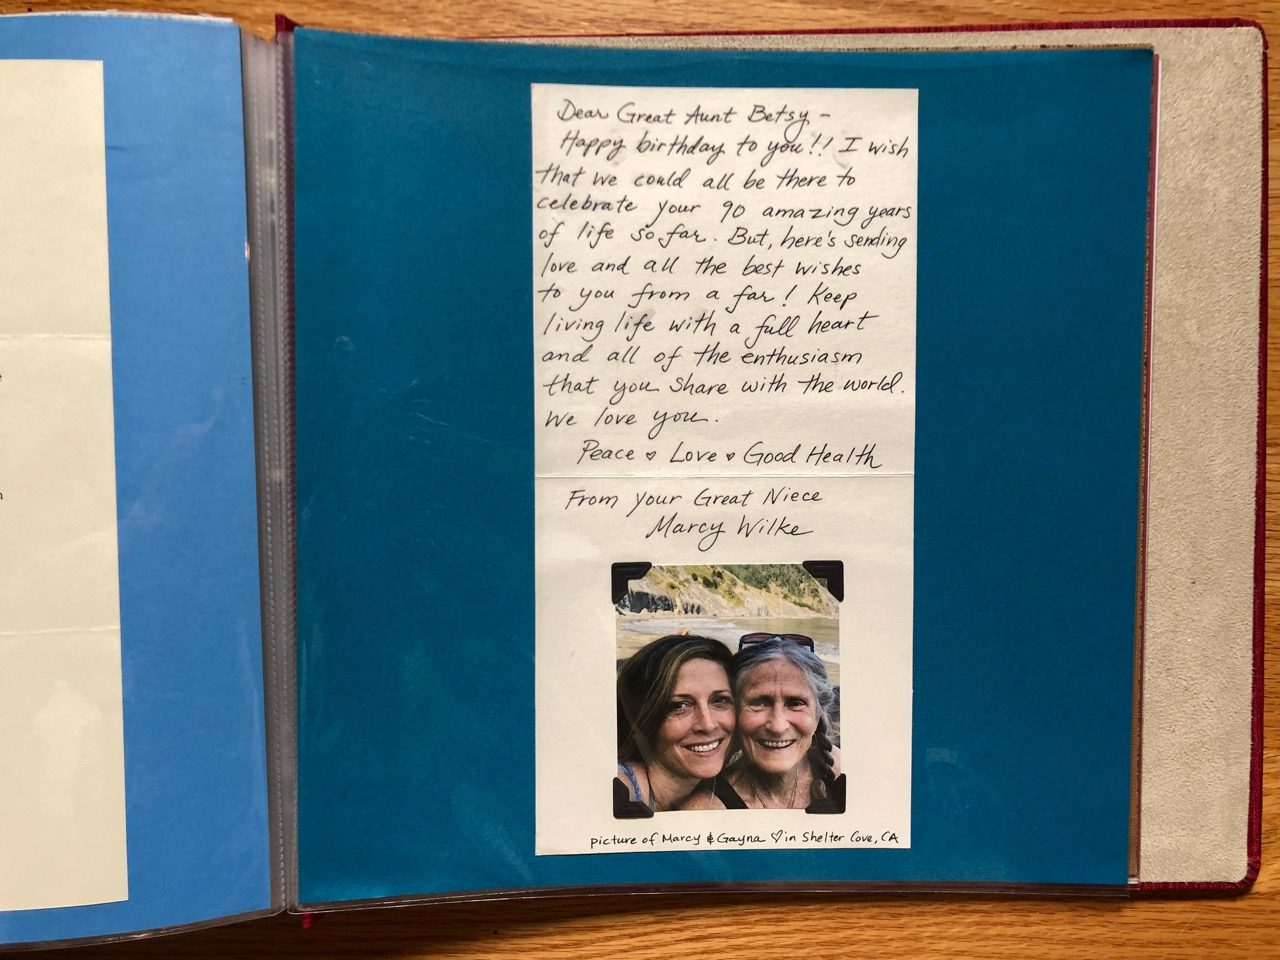 Dear Great Aunt Betsy –
Happy birthday to you!! I wish
that we could all be there to
celebrate your 90 amazing years
of life so far. But, here's sending
love and all the best wishes
to you from a far! Keep
living life with a full heart
and all of the enthusiasm
that you share with the world.
We love you.
Peace ♥ Love ♥ Good Health
From your Great Niece
Marcy Wilke
picture of Marcy & Gayna ♡ in Shelter Cove, CA